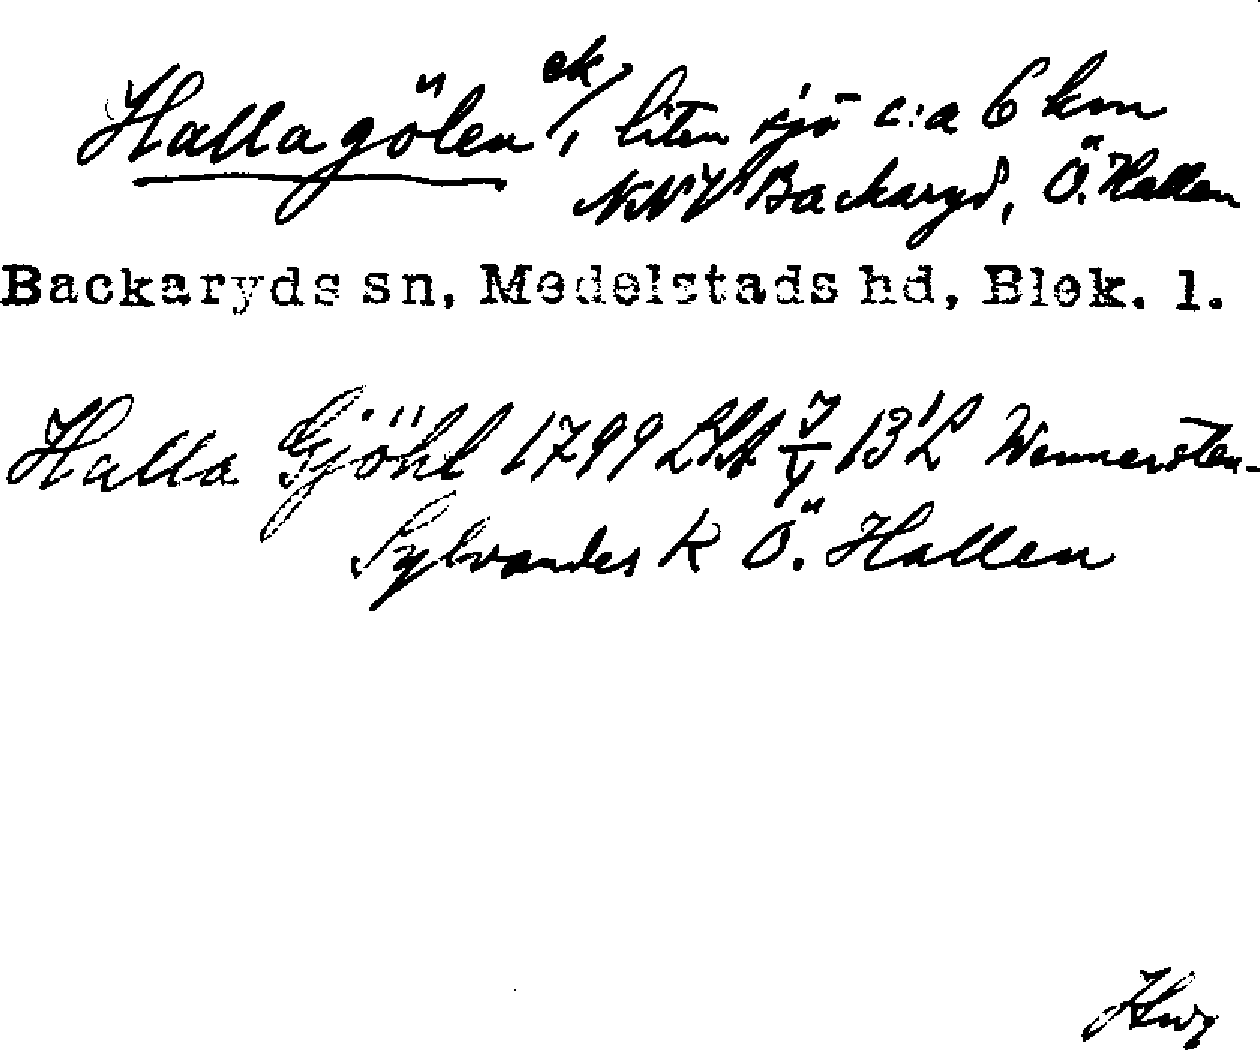 Hallagölen ek/, liten sjö c:a 6 km
NNV Backaryd, Ö. Hallen
Backaryds sn, Medelstads hd, Blek. l.
Halla Gjöhl 1799 LSA 13 Wennersten-
Sylvanders k Ö. Hallen